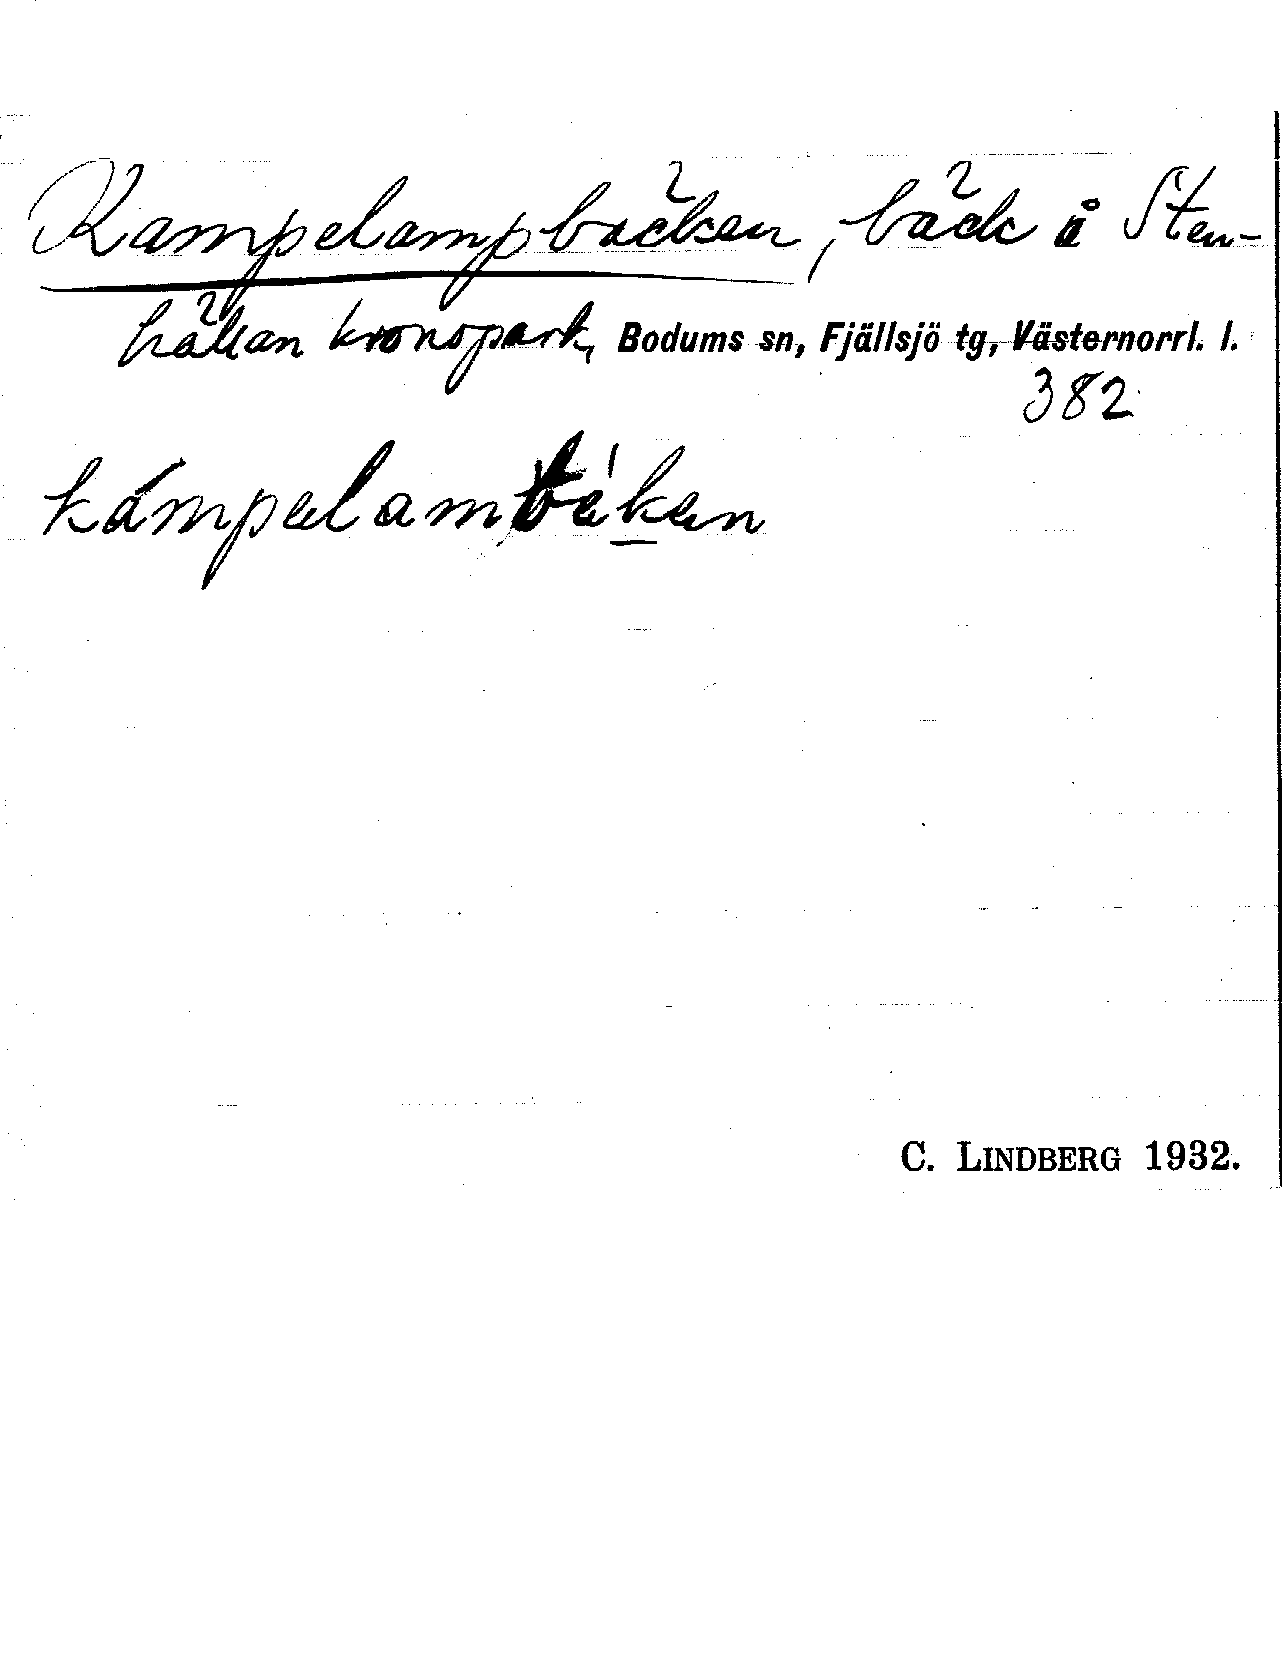 Kampelampbäcken, bäck å Sten-
hällan kronopark, Bodums sn, Fjällsjö tg, Västernorrl. l.
382
C. LINDBERG 1932.